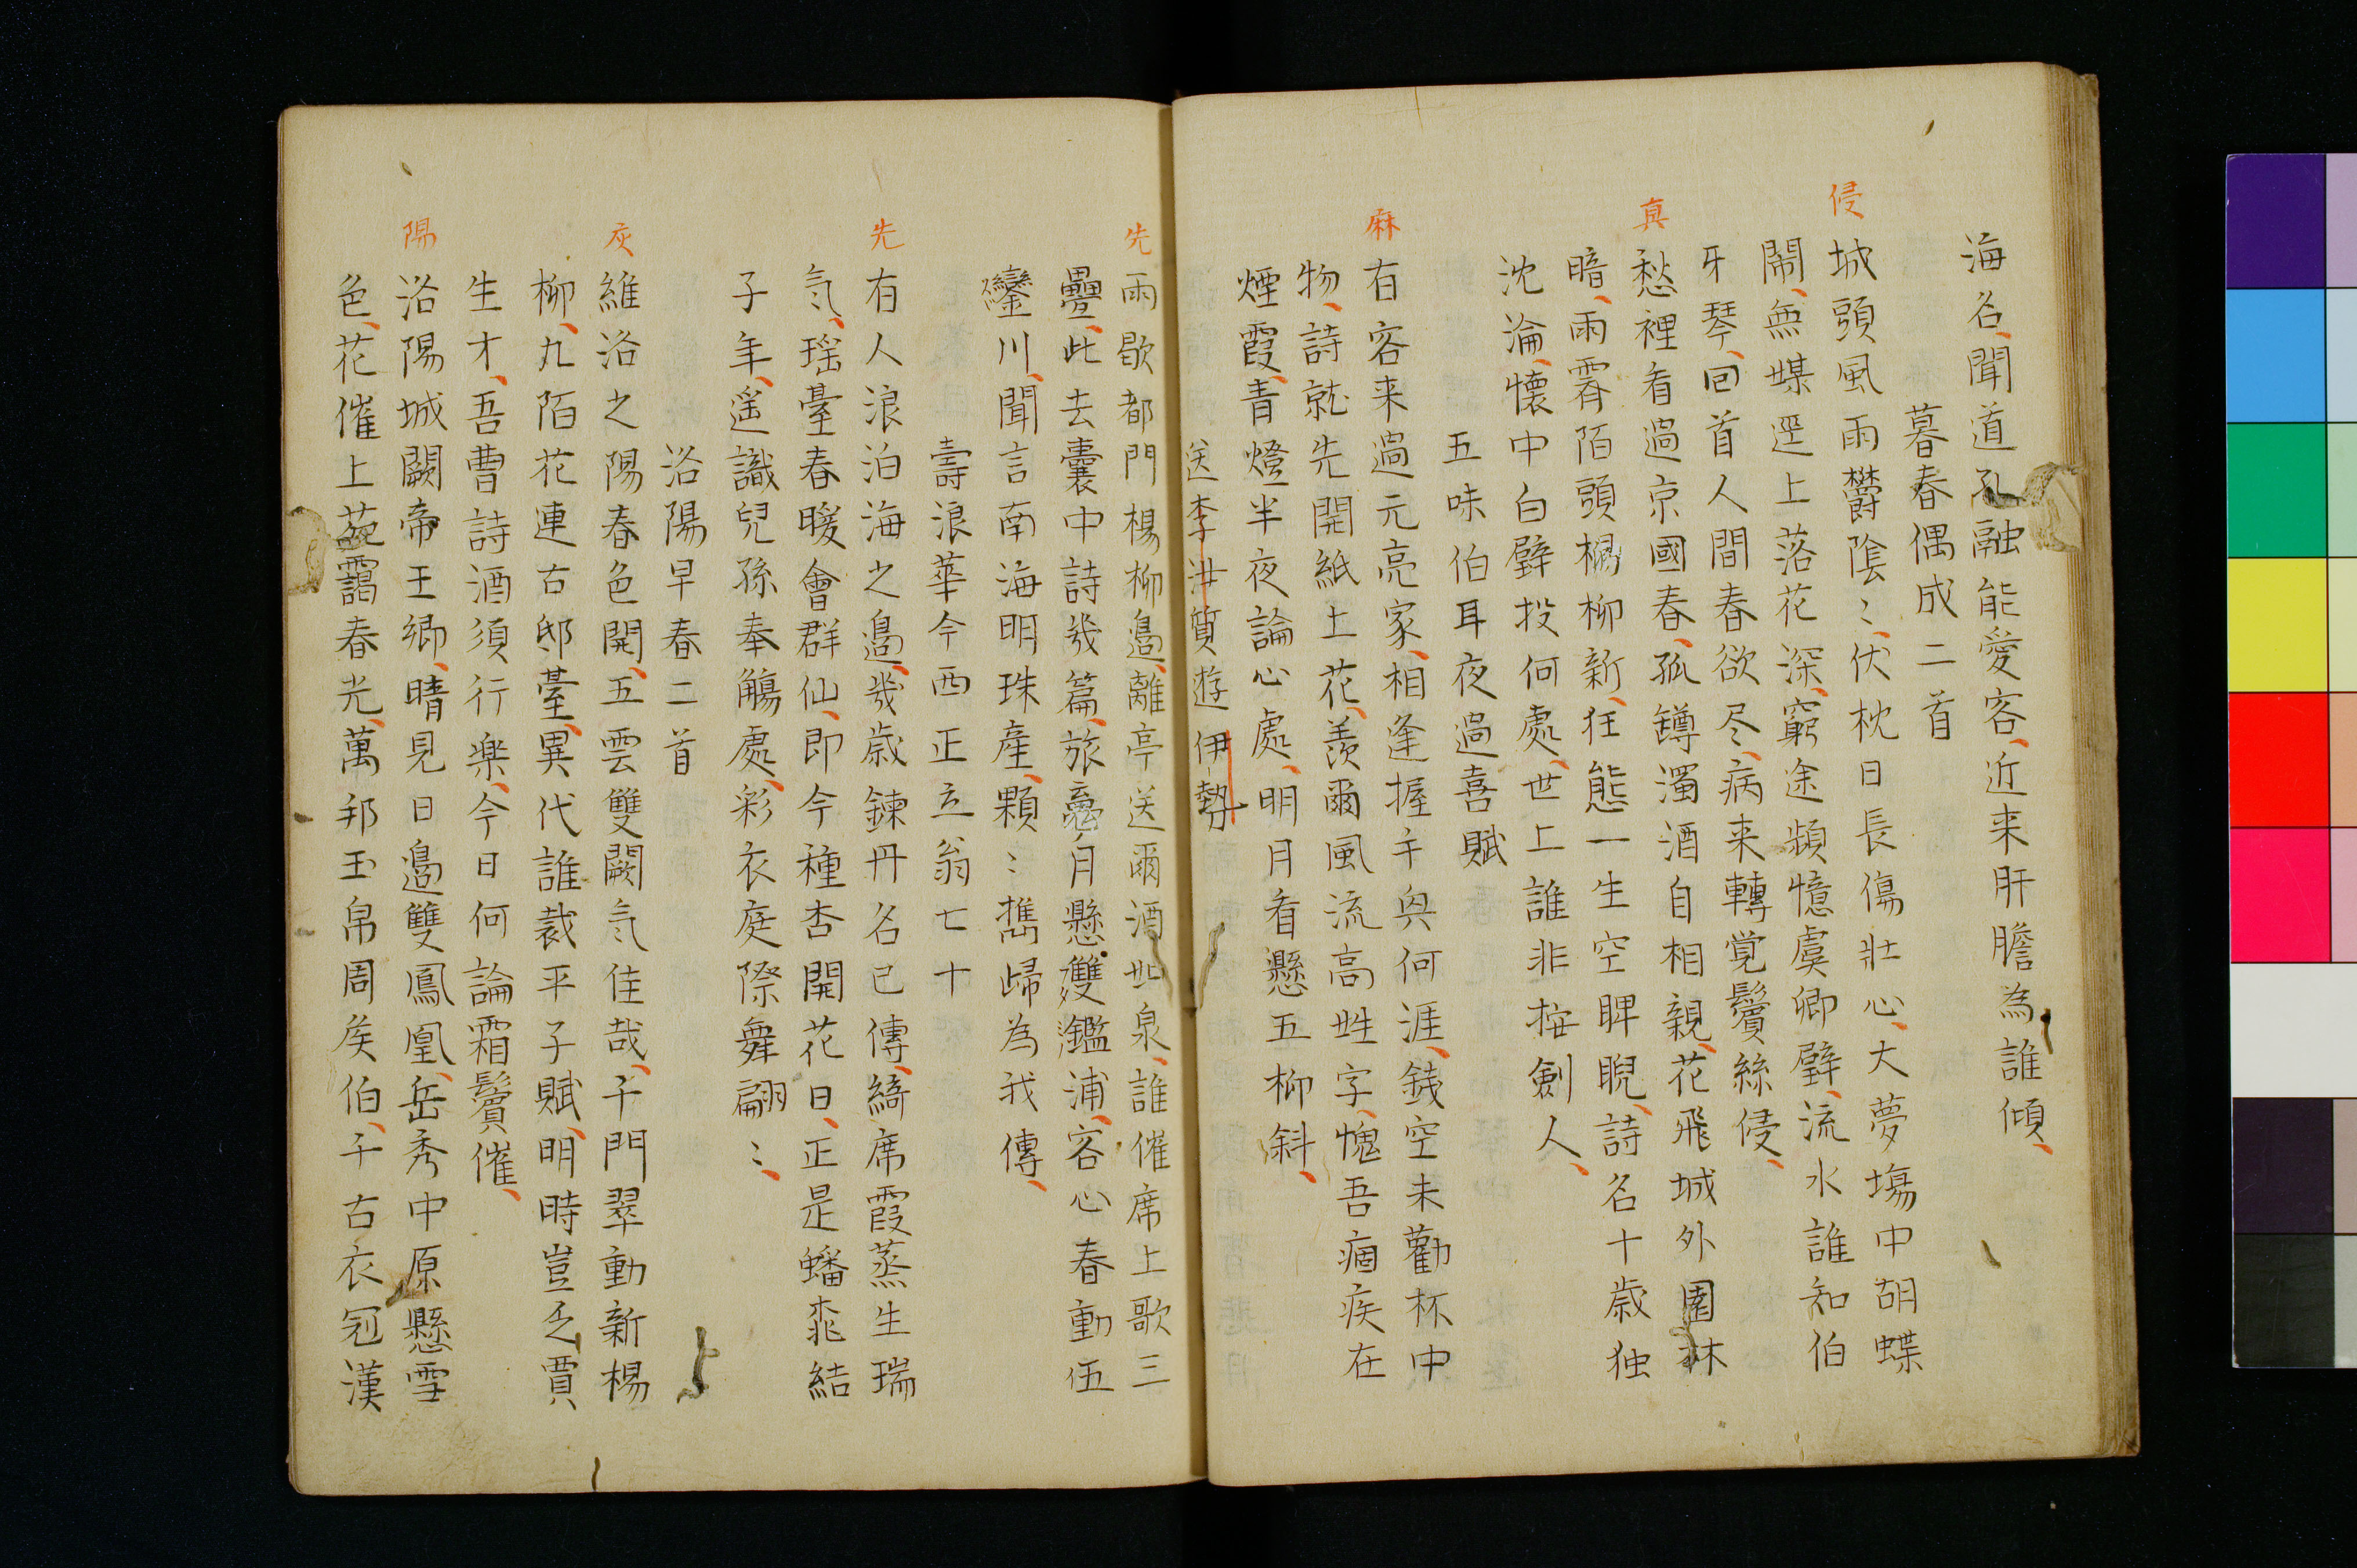 海名、聞道孔融能愛客、近来肝膽為誰傾、
暮春偶成二首
侵
城頭風雨欝陰〻、伏枕日長傷壯心、大夢場中胡蝶
鬧、無媒逕上落花深、窮途頻憶虞卿璧、流水誰知伯
牙琴、回首人間春欲尽、病来轉覚鬢絲侵、
真
愁裡看過京國春、孤罇濁酒自相親、花飛城外園林
暗、雨霽陌頭楊柳新、狂態一生空睥睨、詩名十歳独
沈淪、懷中白璧投何處、世上誰非按劍人、
五味伯耳夜過喜賦
麻
有客来過元亮家、相逢握手與何涯、錢空未勸杯中
物、詩就先開紙上花、羨爾風流高姓字、愧吾痼疾在
煙霞、青燈半夜論心處、明月看懸五柳斜、
送李洪質遊伊勢
先
雨歇都門楊柳邉、離亭送爾酒如泉、誰催席上歌三
疊、此去囊中詩幾篇、旅月懸雙鑑浦、客心春動伍
鑾川、聞言南海明珠產、顆〻携歸為我傳、
壽浪華今西正立翁七十
先
有人浪泊海之邉、幾歳鍊丹名已傳、綺席霞蒸生瑞
氣、瑶臺春暖會群仙、即今種杏開花日、正是蟠桃結
子年、遥識兒孫奉觴處、彩衣庭際舞翩〻、
洛陽早春二首
灰
維洛之陽春色開、五雲雙闕氣佳哉、千門翠動新楊
柳、九陌花連古邸臺、異代誰裁平子賦、明時豈乏賈
生才、吾曹詩酒須行樂、今日何論霜鬢催、
陽
洛陽城闕帝王郷、晴見日邉雙鳳凰、岳秀中原懸雪
色、花催上苑靄春光、萬邦玉帛周侯伯、千古衣冠漢